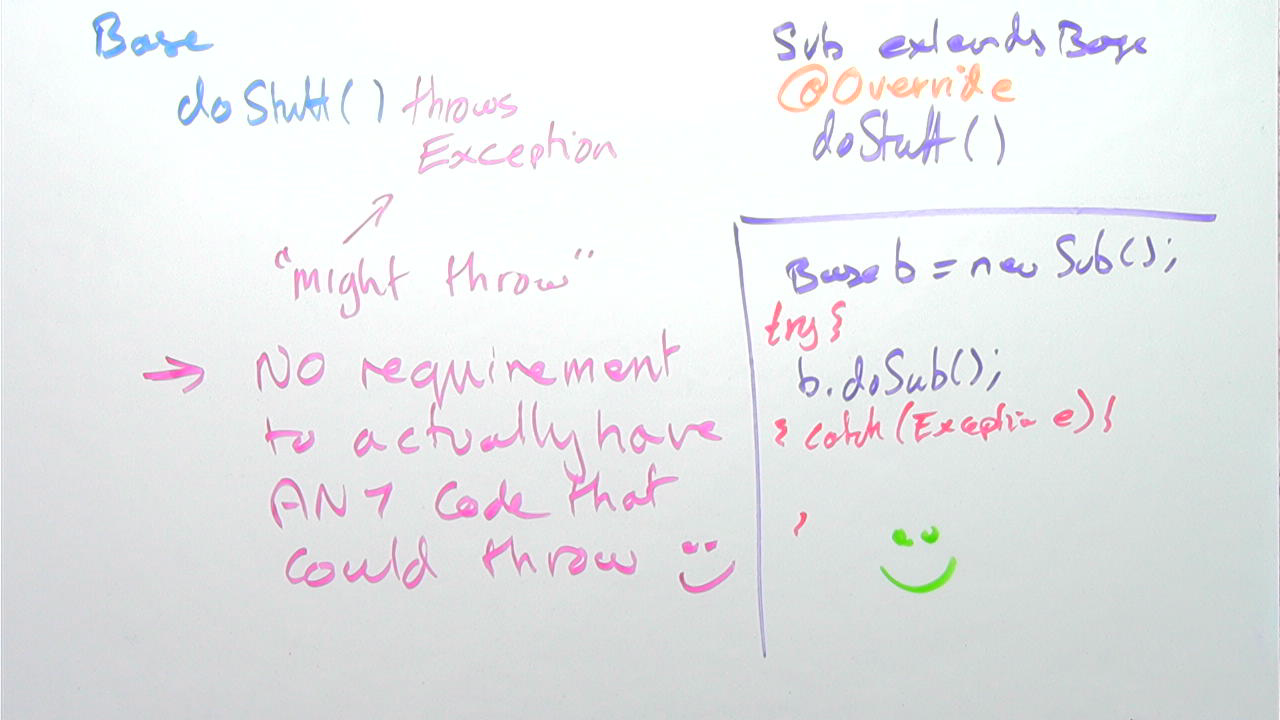 Base
doStuff() throws
Exception
"might throw"
→ NO requirement
to actually have
ANY code that
could throw
Sub extends Base
@Override
doStuff()
Base b = new Sub();
try {
b.doSub();
} catch (Exception e) {
}